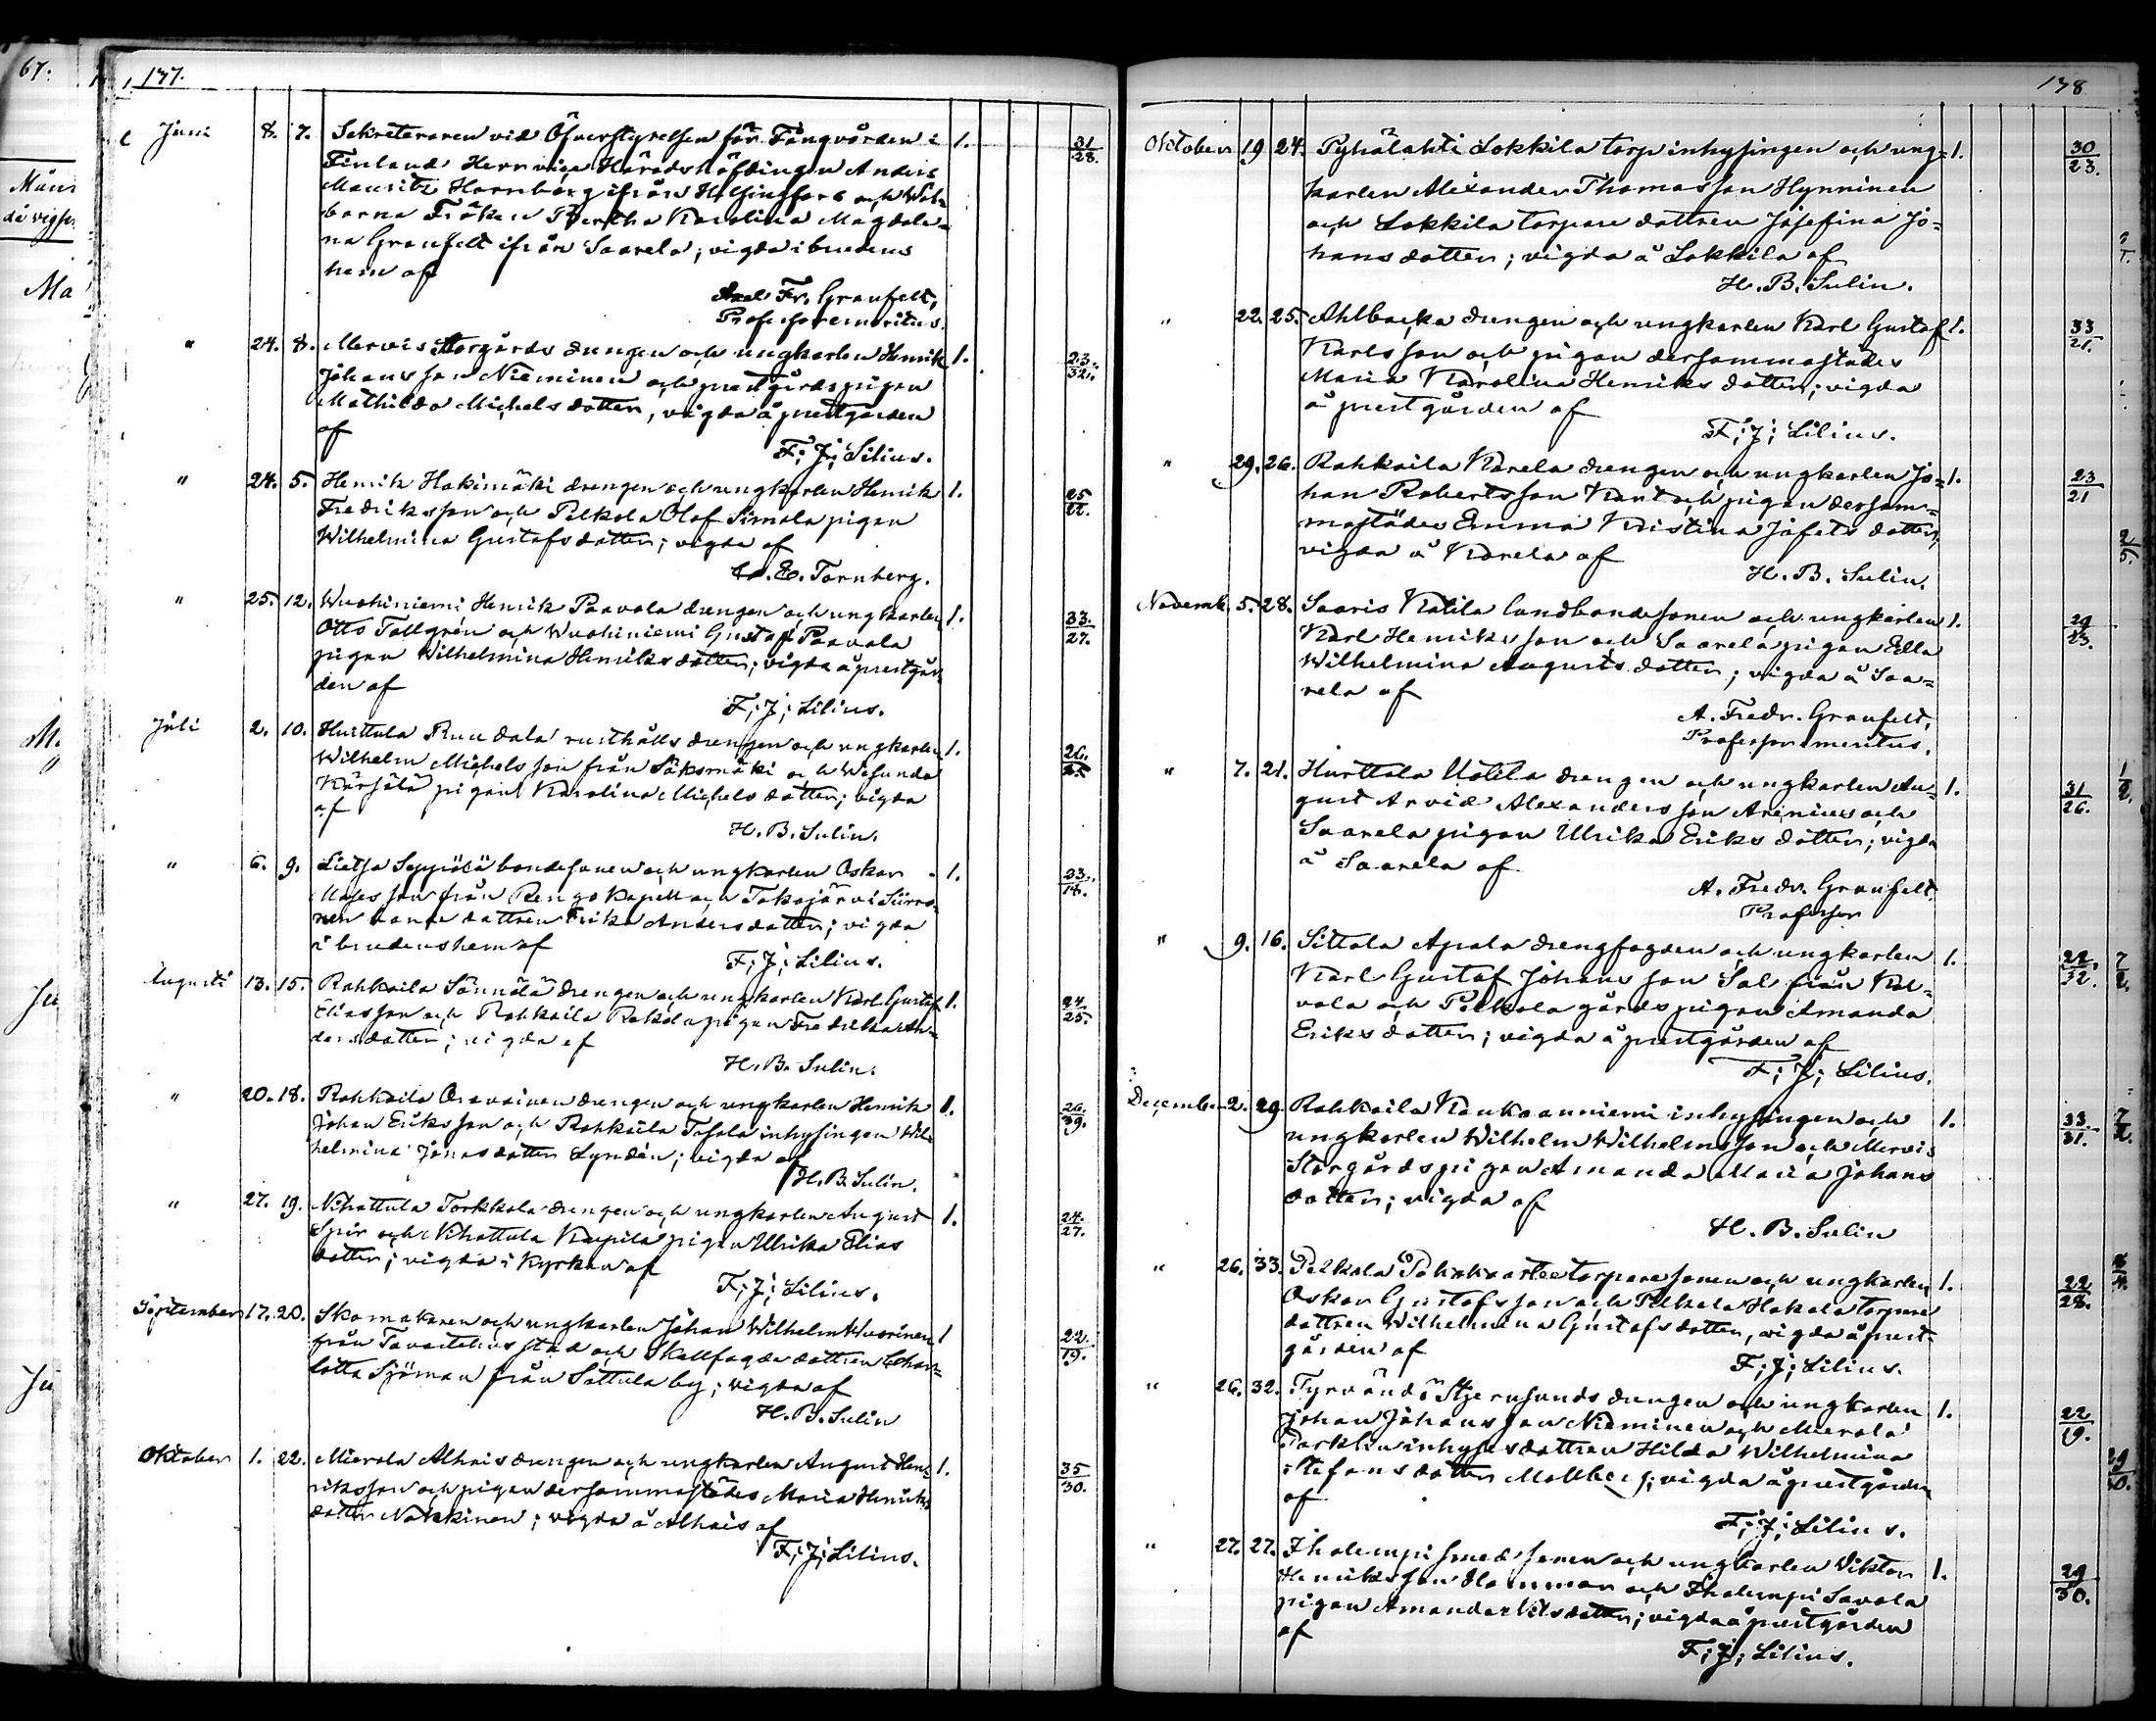 67.
137.
Juni 8. 7. Sekreteraren vid Öfverstyrelsen för Fångvården i 1. 31/28.
Finland Herr vice Häradshöfdingen Anders
Mauritz Hornborg ifrån Helsingfors och Wäl-
borna Fröken Bertha Karolina Magdale-
na Granfelt ifrån Saarela; vigda i brudens
hem af
Axel Fr. Granfelt,
Professor emeritus.
" 24. 8. Mervis Storgårds drengen och ungkarlen Henrik 1. 23./32.
Johansson Nieminen och prestgårdspigan
Mathilda Michelsdotter, vigda å prestgården
af
F; J; Lilius.
" 24. 5. Henrik Hakimäki drengen och ungkarlen Henrik 1. 25/22.
Fredriksson och Pelkola Olof Simola pigan
Wilhelmina Gustafsdotter; vigda af
E. Tornberg.
" 25. 12. Wuohiniemi Henrik Paavola drengen och ungkarlen 1. 33./27.
Otto Tallgrén och Wuohiniemi Gustaf Paavola
pigan Wilhelmina Henriksdotter; vigda å prestgår-
den af
F; J; Lilius.
Juli 2. 10. Hurttula Ruudala rusthålls drengen och ungkarlen 1. 26./25
Wilhelm Michelsson från Sääksmäki och Wesunda
Kärjälä pigan Karolina Michelsdotter; vigda
af
H. B. Sulin.
" 6. 9. Lietsa Seppälä bondesonen och ungkarlen Oskar 1. 23./18.
Mosesson från Rengo Kapell och Takajärvi
dottren Erika Andersdotter; vigda
i brudens hem af
F; J; Lilius.
Augusti 13. 15. Rahkoila Sännälä drengen och ungkarlen Karl Gustaf 1. 24./25.
Eliasson och Rahkoila Rekola pigan Fredrika An-
dersdotter; vigda af
H. B. Sulin.
" 20. 18. Rahkoila Oravainen drengen och ungkarlen Henrik 1. 26./39.
Johan Eriksson och Rahkoila Tasala inhysingen Wil-
helmina Jonasdotter Lyndén; vigda af
H. B. Sulin.
" 27. 19. Nihattula Torkkola drengen och ungkarlen August 1. 24./27.
Spir och Nihattula Kupila pigan Ulrika Elias
dotter; vigda i Kyrkan af
F; J; Lilius.
September 17. 20. Skomakaren och ungkarlen Johan Wilhelm Wuorinen 1 22./19.
från Tavastehus stad och Skallfogde dottren Char-
lotta Sjöman från Sattula by; vigda af
H. B. Sulin
Oktober 1. 22. Mierola Alhais drengen och ungkarlen August Hen- 1. 35/30.
riksson och pigan dersammastädes Maria Henriks
dotter Nokkinen; vigda å Alhais af
F; J; Lilius.
138
Oktober 19 24. Pyhälahti Lokkila torp inhysingen och ung- 1. 30/23.
karlen Alexander Thomasson Hynninen
och Lokkila torpare dottren Josefina Jo-
hansdotter; vigda å Lokkila af
H. B. Sulin.
" 22. 25. Ahlbacka drengen och ungkarlen Karl Gustaf 1. 33/21.
Karlsson och pigan dersammastädes
Maria Karolina Henriksdotter; vigda
å prestgården af
F; J; Lilius.
" 29. 26. Rahkoila Karela drengen och ungkarlen Jo- 1. 23/21
han Robertsson Kant och pigan dersam-
mastädes Emma Kristina Jafetsdotter,
vigda å Karela af
H. B. Sulin.
Novemb. 5. 28. Saaris Kotila landbondesonen och ungkarlen 1. 29/23.
Karl Henriksson och Saarela pigan Edla
Wilhelmina Augustsdotter; vigda å Saa-
rela af
A. Fredr. Granfelt,
Professor emeritus.
" 7. 21. Hurttala Uotila drengen och ungkarlen Au- 1. 31/26.
gust Arvid Alexandersson Arenius och
Saarela pigan Ulrika Eriksdotter; vigda
å Saarela af
A. Fredr. Granfelt
Professor
" 9. 16. Sittala Apala drengfogden och ungkarlen 1. 22./32.
Karl Gustaf Johansson Sal från Kal-
vola och Pelkola gårdspigan Amanda
Eriksdotter; vigda å prestgården af
F; J; Lilius.
December 2. 29. Rahkoila Kaukoanniemi inhysingen och 1. 33./31.
ungkarlen Wilhelm Wilhelmsson och Mervis
Storgårds pigan Amanda Maria Johans
dotter; vigda af
H. B. Sulin
" 26. 33. Pelkola torparesonen och ungkarlen 1. 22/28.
Oskar Gustafsson och Pelkola Hakala torpare
dottren Wilhelmina Gustafsdotter, vigda å prest
gården af
F; J; Lilius.
" 26. 32. Tyrvändö Stjernsunds drengen och ungkarlen 1. 22/19.
Johan Johansson Nieminen och Mierola
Parkkin inhyses dottren Hilda Wilhelmina
Stefansdotter Mallberg; vigda å prestgården
af
F; J; Lilius.
" 27. 27. Ihalempi smedssonen och ungkarlen Viktor 1. 29/30.
Henriksson Hamman och Ihalempi Savola
pigan Amanda Nilsdotter; vigda å prestgården
af
F; J; Lilius.